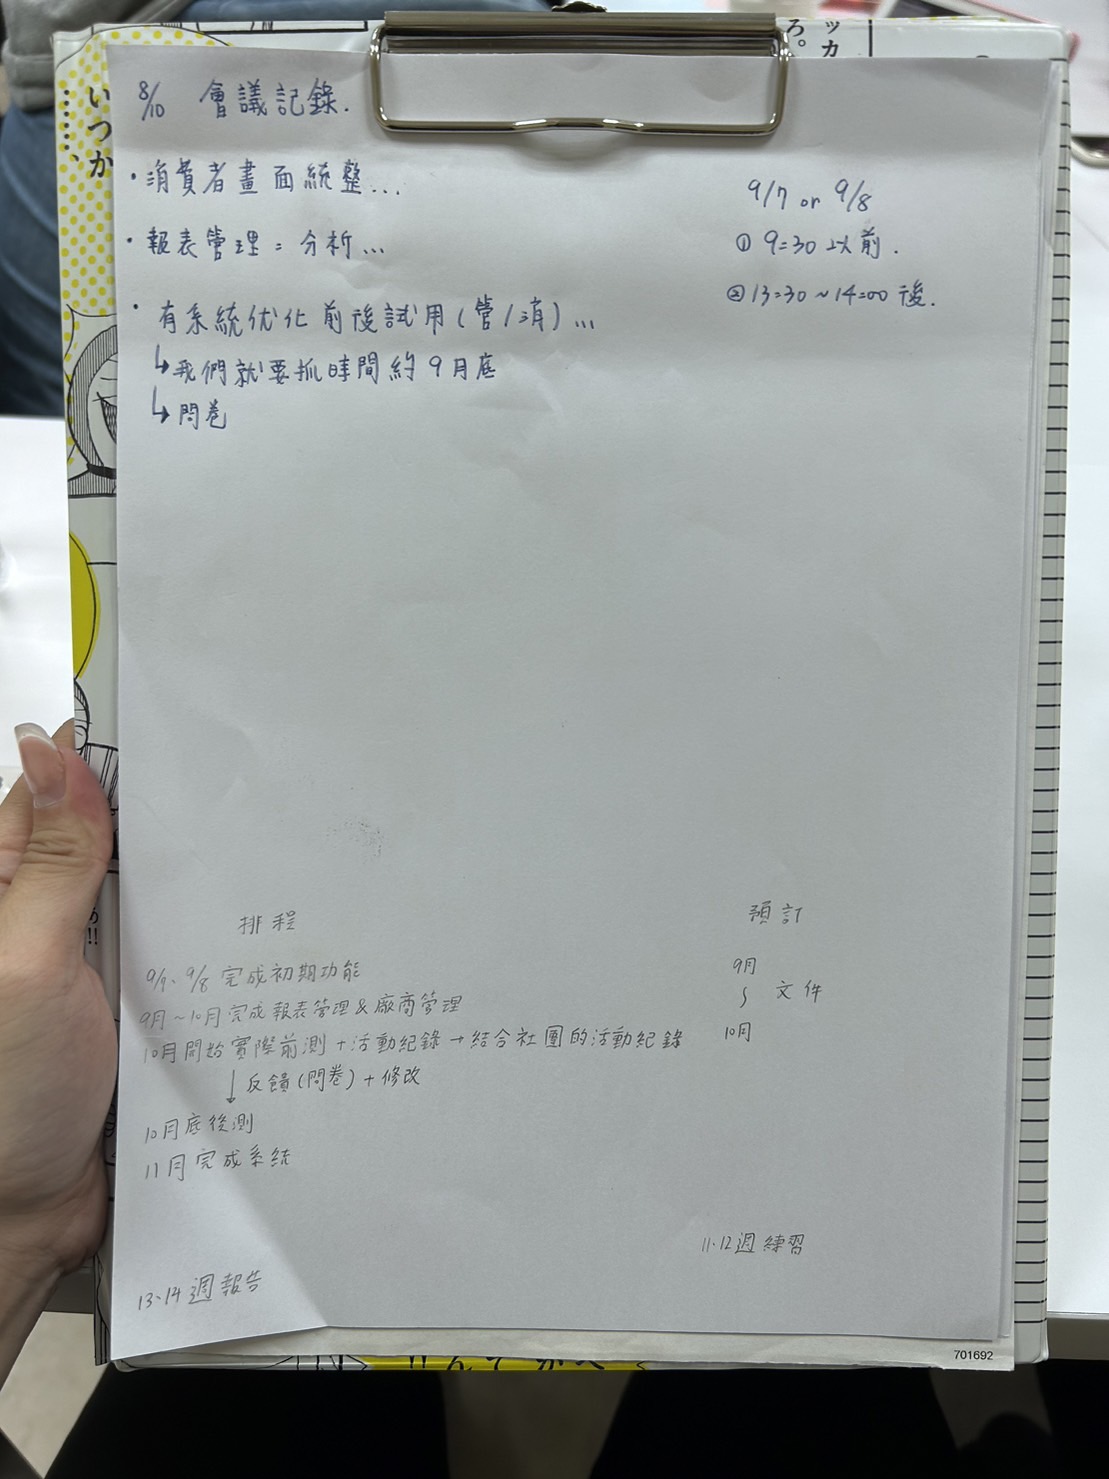 8/10 會議記錄.
・消費者畫面統整...
・報表管理：分析...
・有系統优化前後試用(管/消)...
↳我們就要抓時間約9月底
↳問卷
9/7 or 9/8
① 9:30以前.
② 13:30~14:00後.
排程
9/7、9/8 完成初期功能
9月~10月完成報表管理&廠商管理
10月開始實際前測+活動紀錄→結合社團的活動紀錄
↓反饋(問卷)+修改
10月底後測
11月完成系統
13、14週報告
預訂
9月
∫ 文件
10月
11、12週練習
ッカ
ろ。
いつか
……、
!!
701692